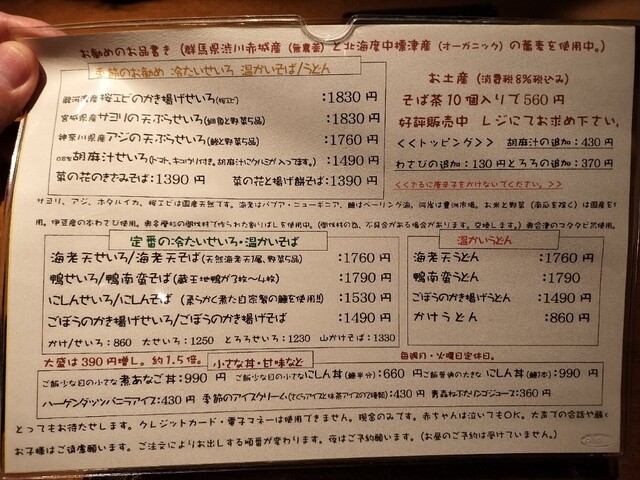 お勧めのお品書き (群馬県渋川赤城産 (無農薬) と北海道中標津産 (オーガニック) の蕎麦を使用中。)
季節のお勧め 冷たいせいろ 温かいそば/うどん
駿河湾産桜エビのかき揚げせいろ(桜エビ) :1830 円
宮城県産サヨリの天ぷらせいろ(鱚魚と野菜5品) :1830 円
神奈川県産アジの天ぷらせいろ(鯵と野菜5品) :1760 円
胡麻汁せいろ(トマト、キュウリ付き。胡麻汁にクルミが入ってます。) :1490 円
菜の花のきざみそば:1390 円 菜の花と揚げ餅そば:1390 円
お土産 (消費税8%税込み)
そば茶10個入りで560円
好評販売中 レジにてお求め下さい。
<<トッピング>> 胡麻汁の追加:430円
わさびの追加:130円とろろの追加:370円
<<さるに唐辛子をかけないでください。>>
サヨリ、アジ、ホタルイカ、桜エビは国産天然です。海老はパプア・ニューギニア、鰊はベーリング海、河岸は豊洲市場。お米と野菜 (南瓜を除く) は国産を使
用。伊豆産の本わさび使用。奥多摩桧の間伐材で作られた割りばしを使用中。(間伐材の為、不具合がある場合があります。交換します。) 奥会津のコタケビ茶使用。
定番の冷たいせいろ・温かいそば
海老天せいろ/海老天そば(天然海老天1尾、野菜5品) :1760 円
鴨せいろ/鴨南蛮そば(蔵王地鴨が3枚〜4枚) :1790 円
にしんせいろ/にしんそば (柔らかく煮た自家製の鰊を使用!!) :1530 円
ごぼうのかき揚げせいろ/ごぼうのかき揚げそば :1490 円
かけ/せいろ:860 大せいろ:1250 とろろせいろ:1230 山かけそば:1330
温かいうどん
海老天うどん :1760 円
鴨南蛮うどん :1790
ごぼうのかき揚げうどん :1490 円
かけうどん :860 円
大盛は390円増し。約1.5倍。 小さな丼・甘味など 毎週月・火曜日定休日。
ご飯少な目の小さな煮あなご丼:990 円 ご飯少な目の小さなにしん丼(鰊半分):660 円 ご飯普通の大きな にしん丼(鰊1本):990 円
ハーゲンダッツバニラアイス:430 円 季節のアイスクリーム(さくらアイスと抹茶アイスの2種類):430 円 青森ねぶたりんごジュース:360 円
とってもお待たせします。クレジットカード・電子マネーは使用できません。現金のみです。赤ちゃんは泣いてもOK。大声での会話や騒ぐ
お子様はご遠慮願います。ご注文によりお出しする順番が変わります。夜はご予約願います。(お昼のご予約は受けていません。)